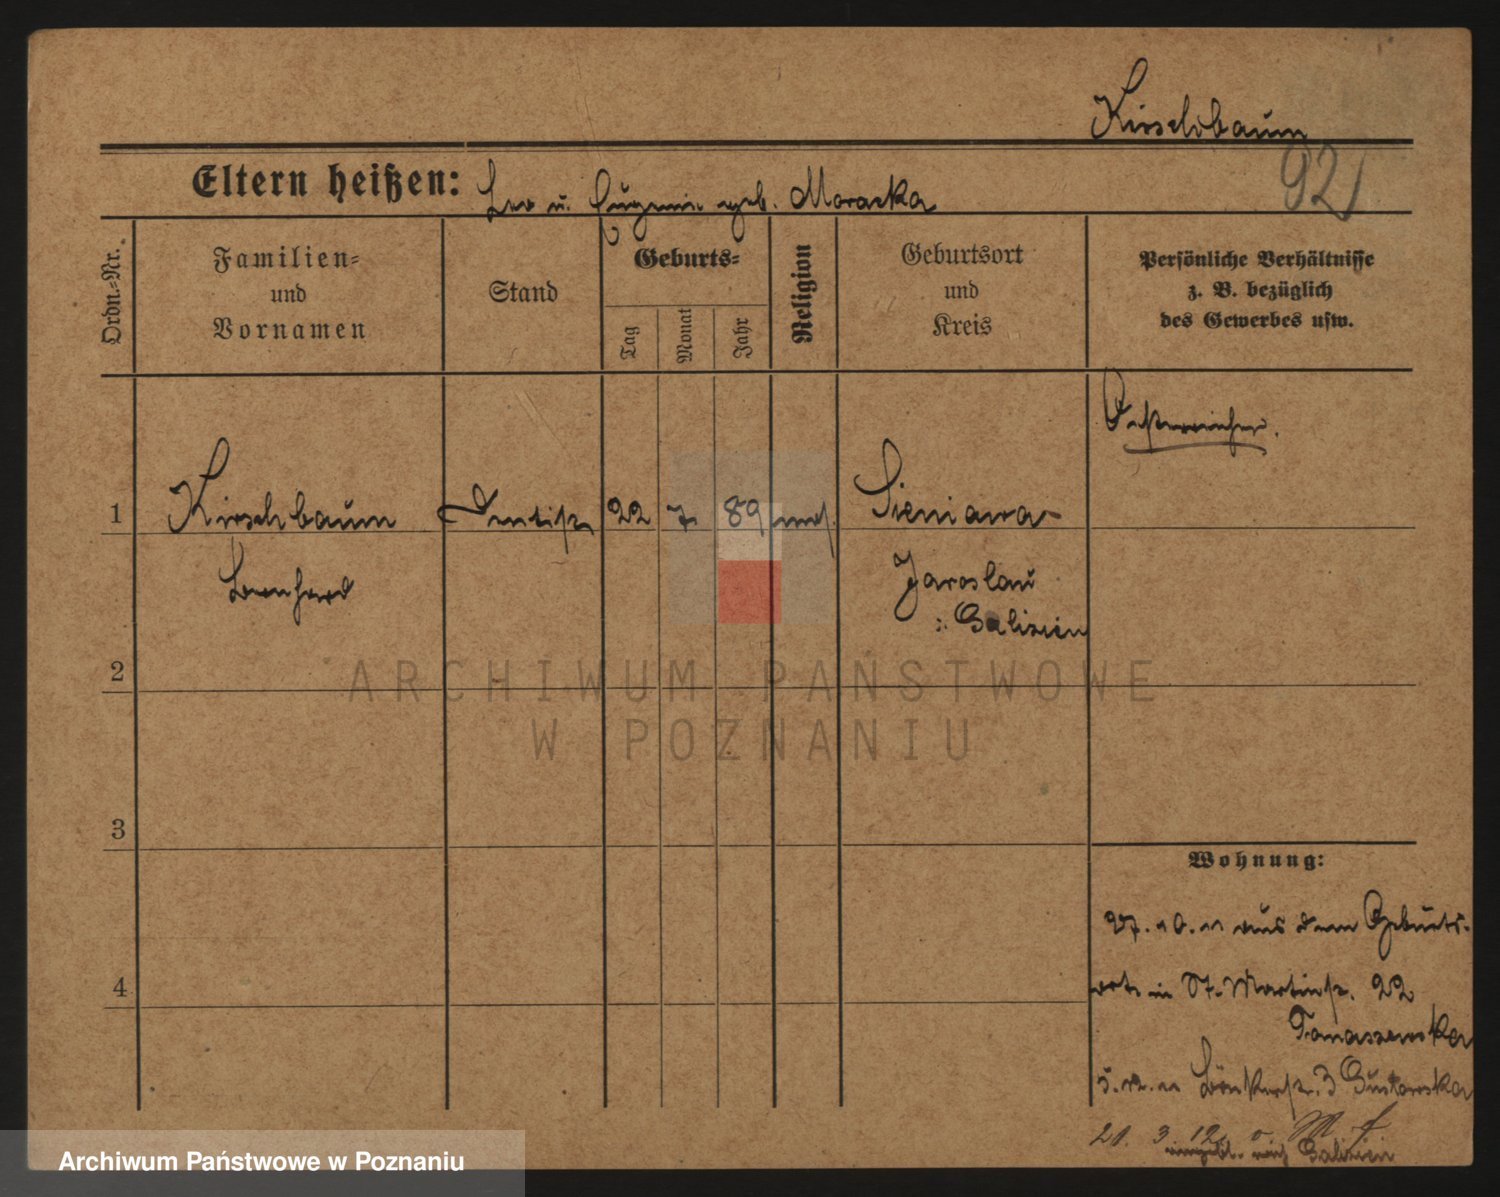 Kirschbaum
92
Eltern heißen: Leo u. Eugenie geb. Moraska
Ordn.-Nr.
Familien-
und
Vornamen
Stand
Geburts-
Tag
Monat
Jahr
Religion
Geburtsort
und
Kreis
Persönliche Verhältnisse
z. B. bezüglich
des Gewerbes usw.
Oesterreicher.
1
Kirschbaum
Dentist
22
7.
89
mos.
Sieniawa
Bernhard
Jaroslau
Galizien
2
3
4
Wohnung:
27. 10. 11 aus dem Geburts-
orte in St. Martinstr. 22
5. 12. 11 Bäckerstr. 3
21. 3. 12
nach Galizien
ARCHIWUM PAŃSTWOWE
W POZNANIU
Archiwum Państwowe w Poznaniu